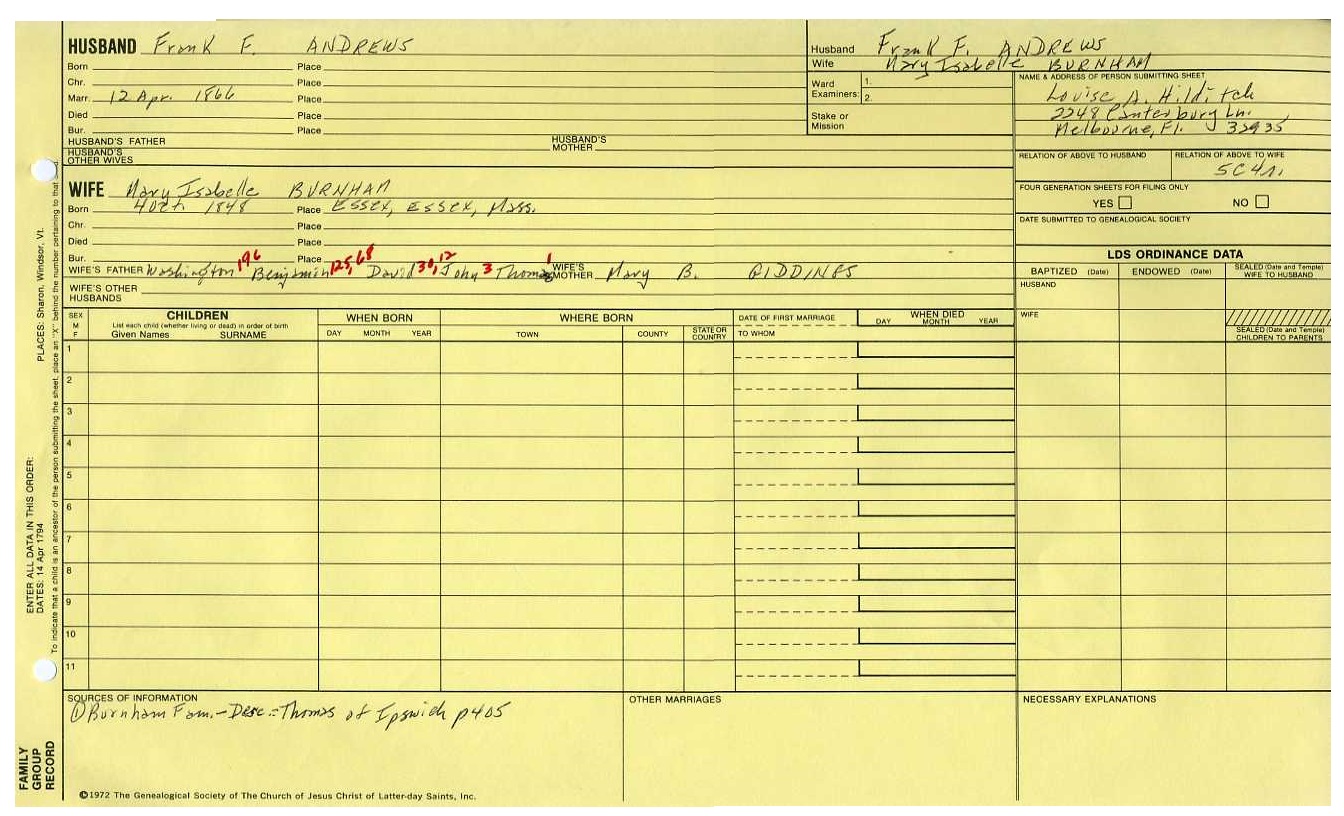 HUSBAND Frank F. ANDREWS
Born Place
Chr. Place
Marr. 12 Apr. 1866 Place
Died Place
Bur. Place
HUSBAND'S FATHER HUSBAND'S MOTHER
HUSBAND'S OTHER WIVES
Husband Frank F. ANDREWS
Wife Mary Isabelle BURNHAM
Ward Examiners: 1. 2.
Stake or Mission
NAME & ADDRESS OF PERSON SUBMITTING SHEET
Louise A. Hilditch
2248 Canterbury Ln.
Melbourne, Fl. 32935
RELATION OF ABOVE TO HUSBAND RELATION OF ABOVE TO WIFE
5C4r.
FOUR GENERATION SHEETS FOR FILING ONLY
YES NO
DATE SUBMITTED TO GENEALOGICAL SOCIETY
WIFE Mary Isabelle BURNHAM
Born 4 Oct. 1848 Place Essex, Essex, Mass.
Chr. Place
Died Place
Bur. Place
WIFE'S FATHER Washington 196 Benjamin 125, 68 David 30, 12 John 3 Thomas 1 WIFE'S MOTHER Mary B. GIDDINGS
WIFE'S OTHER HUSBANDS
LDS ORDINANCE DATA
BAPTIZED (Date) ENDOWED (Date) SEALED (Date and Temple) WIFE TO HUSBAND
HUSBAND
WIFE
SEALED (Date and Temple) CHILDREN TO PARENTS
SEX M F
CHILDREN
List each child (whether living or dead) in order of birth
Given Names SURNAME
WHEN BORN
DAY MONTH YEAR
WHERE BORN
TOWN COUNTY STATE OR COUNTRY
DATE OF FIRST MARRIAGE
TO WHOM
WHEN DIED
DAY MONTH YEAR
1
2
3
4
5
6
7
8
9
10
11
SOURCES OF INFORMATION
① Burnham Fam. - Desc. = Thomas of Ipswich p405
OTHER MARRIAGES
NECESSARY EXPLANATIONS
©1972 The Genealogical Society of The Church of Jesus Christ of Latter-day Saints, Inc.
FAMILY GROUP RECORD
ENTER ALL DATA IN THIS ORDER:
DATES: 14 Apr 1794 PLACES: Sharon, Windsor, Vt.
To indicate that a child is an ancestor of the person submitting the sheet, place an "X" behind the number pertaining to that